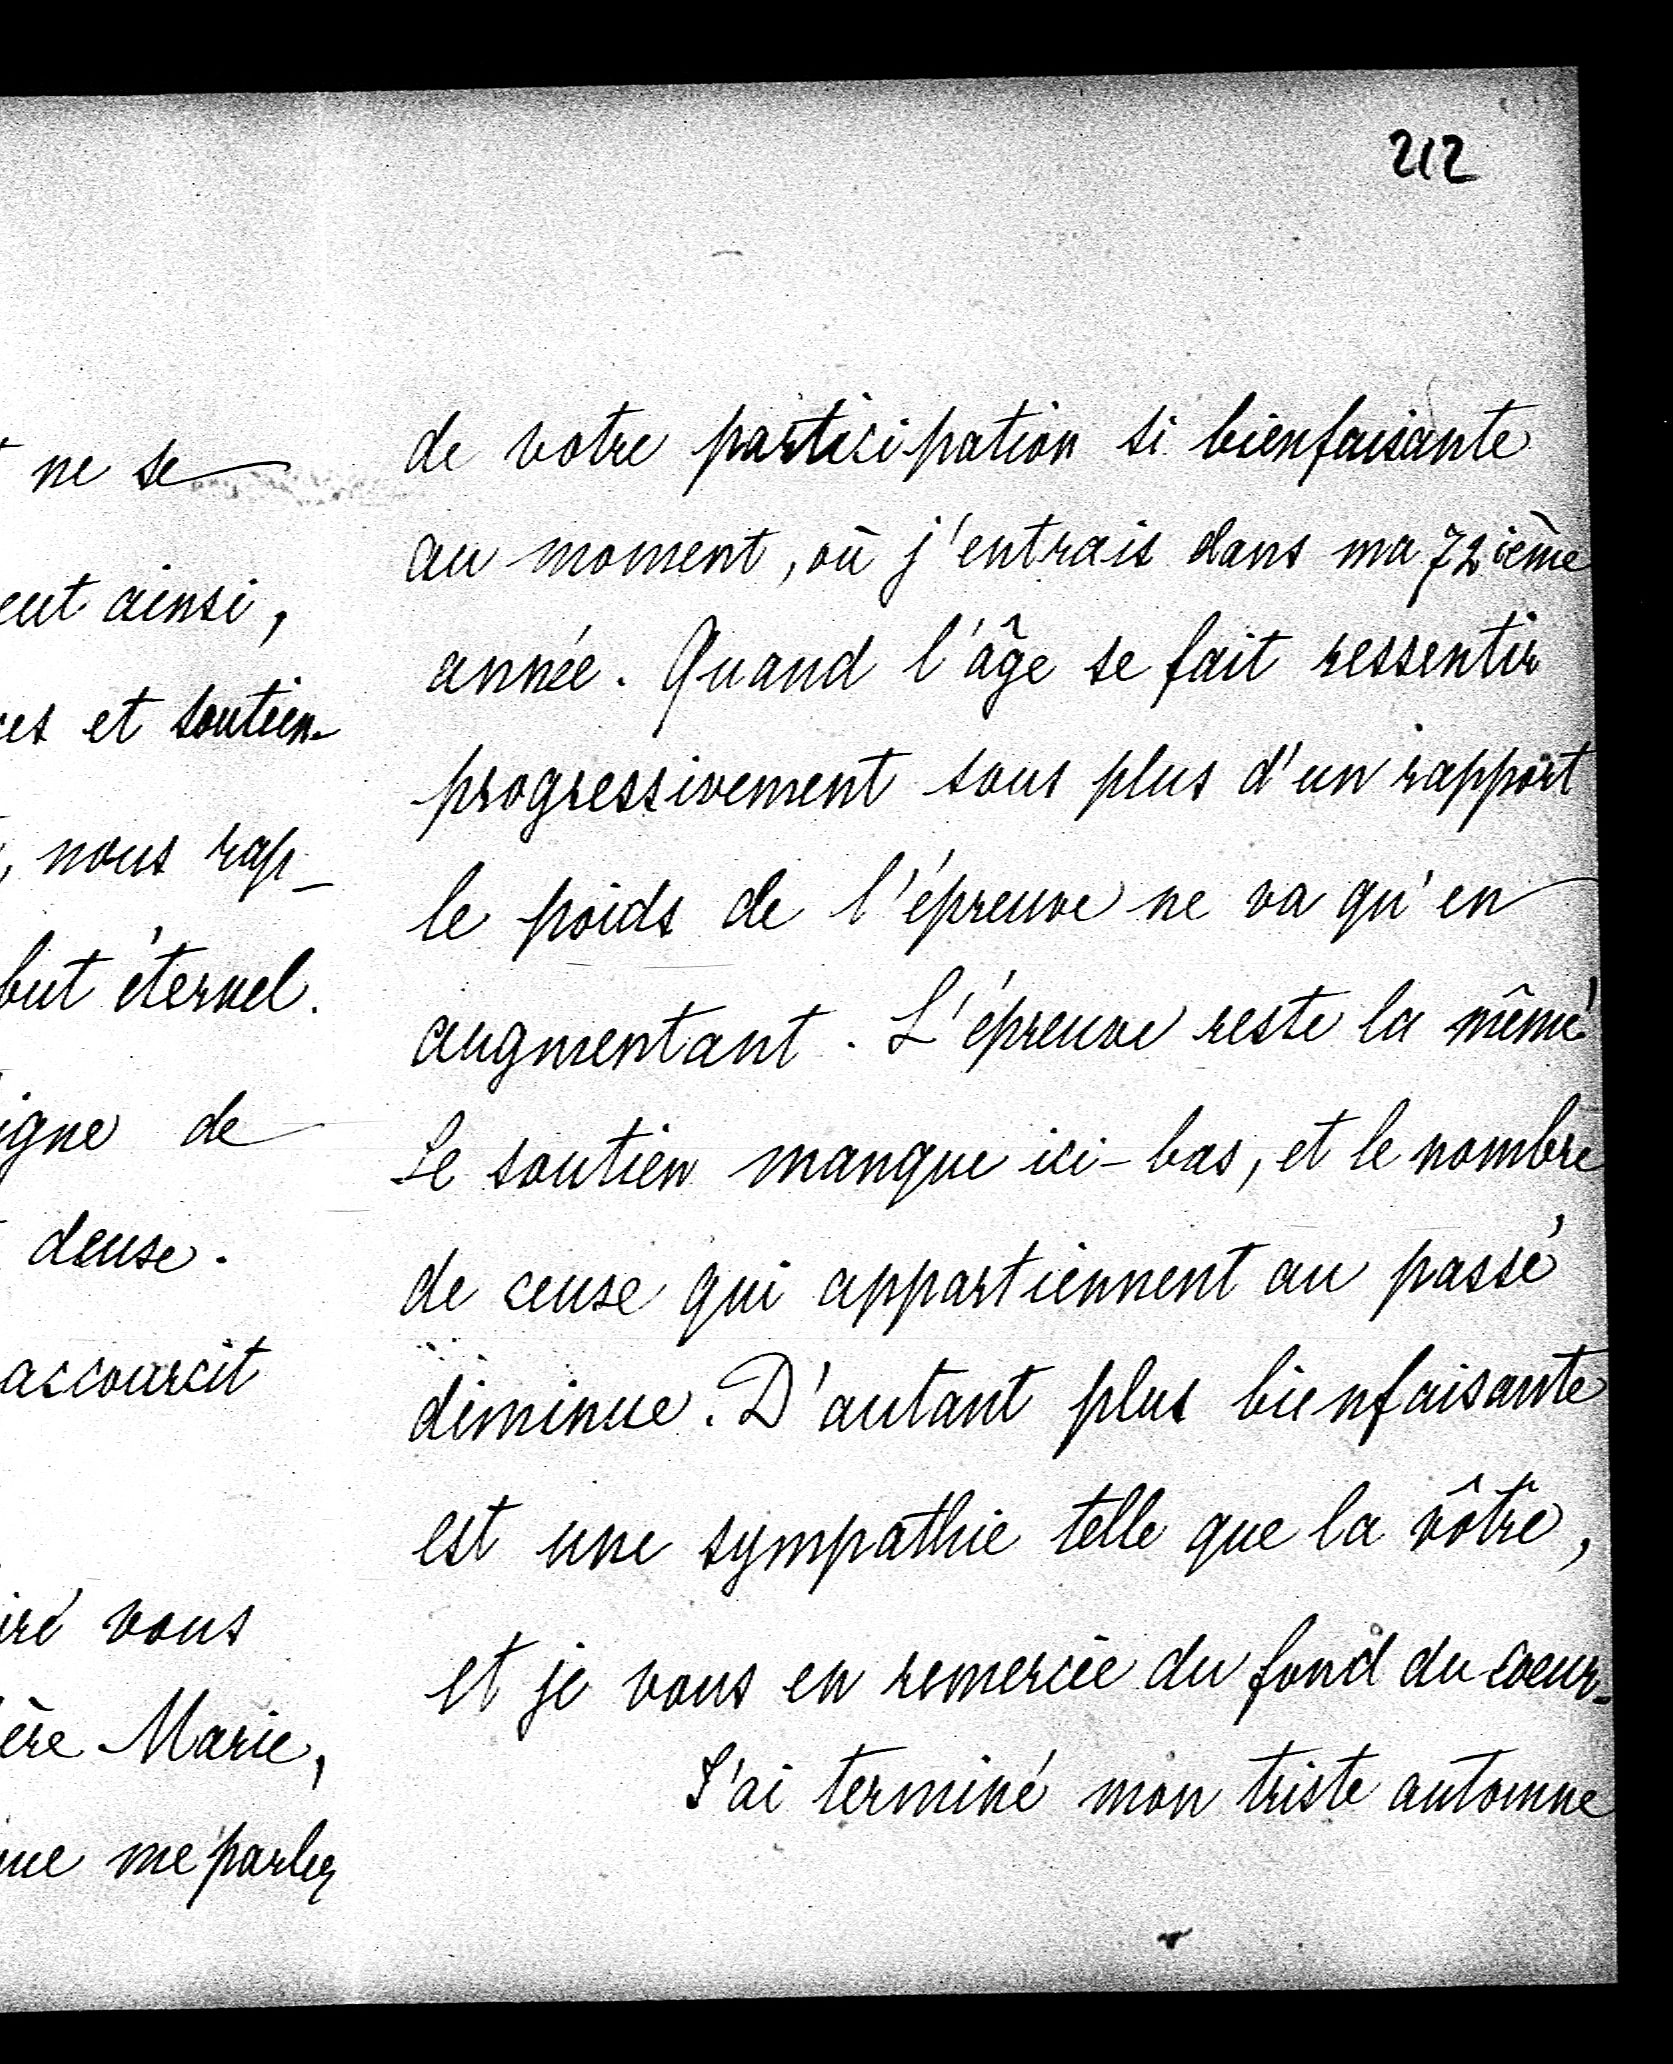 212
ne se
eut ainsi,
ces et soutien-
, nous rap-
but éternel.
igne de
deuse.
accourcit
ire vous
ère Marie,
me parlez
de votre participation si bienfaisante
au moment, où j'entrais dans ma 72 ième
année. Quand l'âge se fait ressentir
progressivement sous plus d'un rapport
le poids de l'épreuve ne va qu'en
augmentant. L'épreuve reste la même
Le soutien manque ici-bas, et le nombre
de ceuse qui appartiennent au passé
diminue. D'autant plus bienfaisante
est une sympathie telle que la vôtre,
et je vous en remercie du fond du coeur.
J'ai terminé mon triste automne